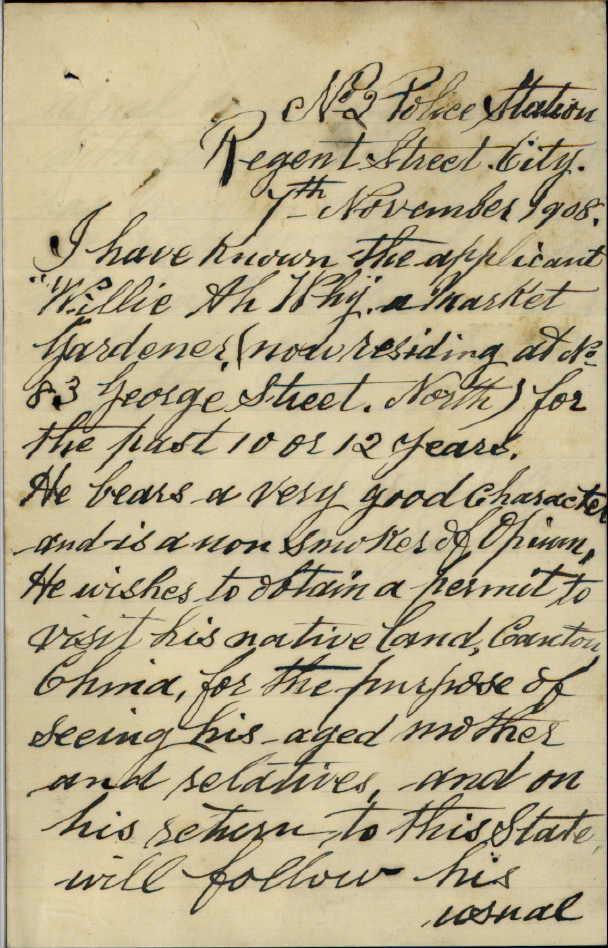 No 2 Police Station
Regent Street. City.
7th November 1908.
I have known the applicant
"Willie Ah Why". a Market
Gardener, (now residing at No
83 George Street. North) for
the past 10 or 12 years.
He bears a very good character
and is a non smoker of Opium,
He wishes to obtain a permit to
visit his native land, Canton
China, for the purpose of
seeing his aged mother
and relatives, and on
his return to this State,
will follow his
usual